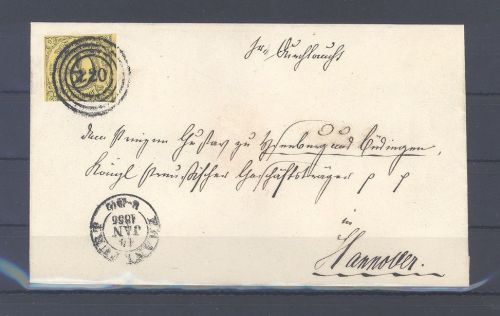 220
Sr. Durchlaucht
dem Prinzen Gustav zu Ysenburg und Büdingen,
Königl Preußischer Geschäftsträger p p
in
Hannover.
14
JAN
1856